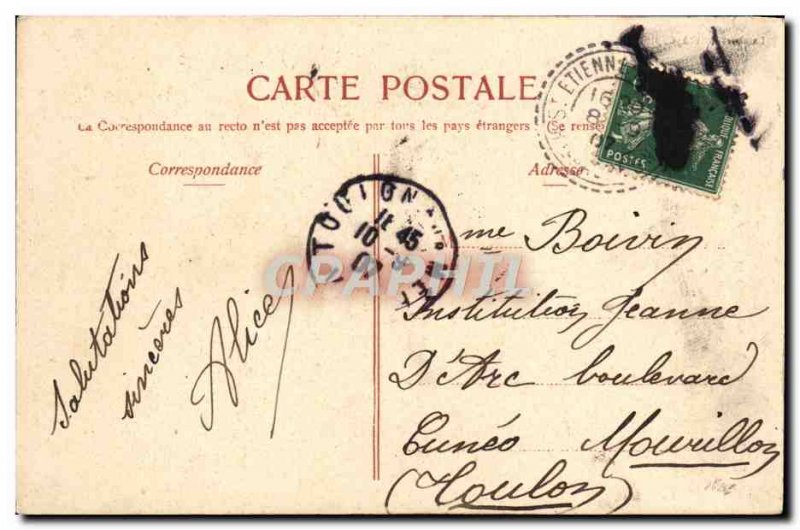 CARTE POSTALE
La Correspondance au recto n'est pas acceptée par tous les pays étrangers (Se rense
Correspondance
Adresse
ST ETIENNE
POSTES
FRANÇAISE
TOULON
11 45
10
CPAPHIL
Mme Boivin
Institution Jeanne
D'Arc boulevard
Cunéo Mourillon
(Toulon)
Salutations
sincères
Alice